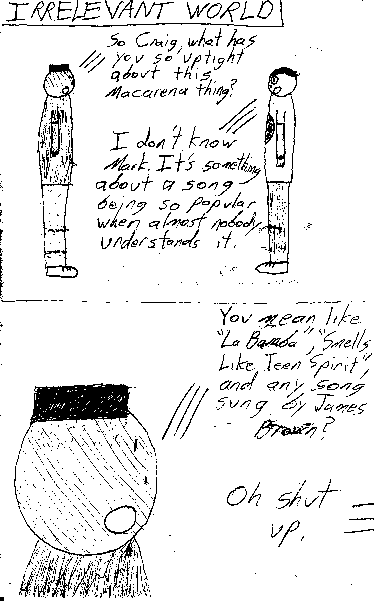 IRRELEVANT WORLD
So Craig, what has
you so uptight
about this
Macarena thing?
I don't know
Mark. It's something
about a song
being so popular
when almost nobody
understands it.
You mean like
"La Bamba", "Smells
Like Teen Spirit",
and any song
sung by James
Brown?
Oh shut
up.